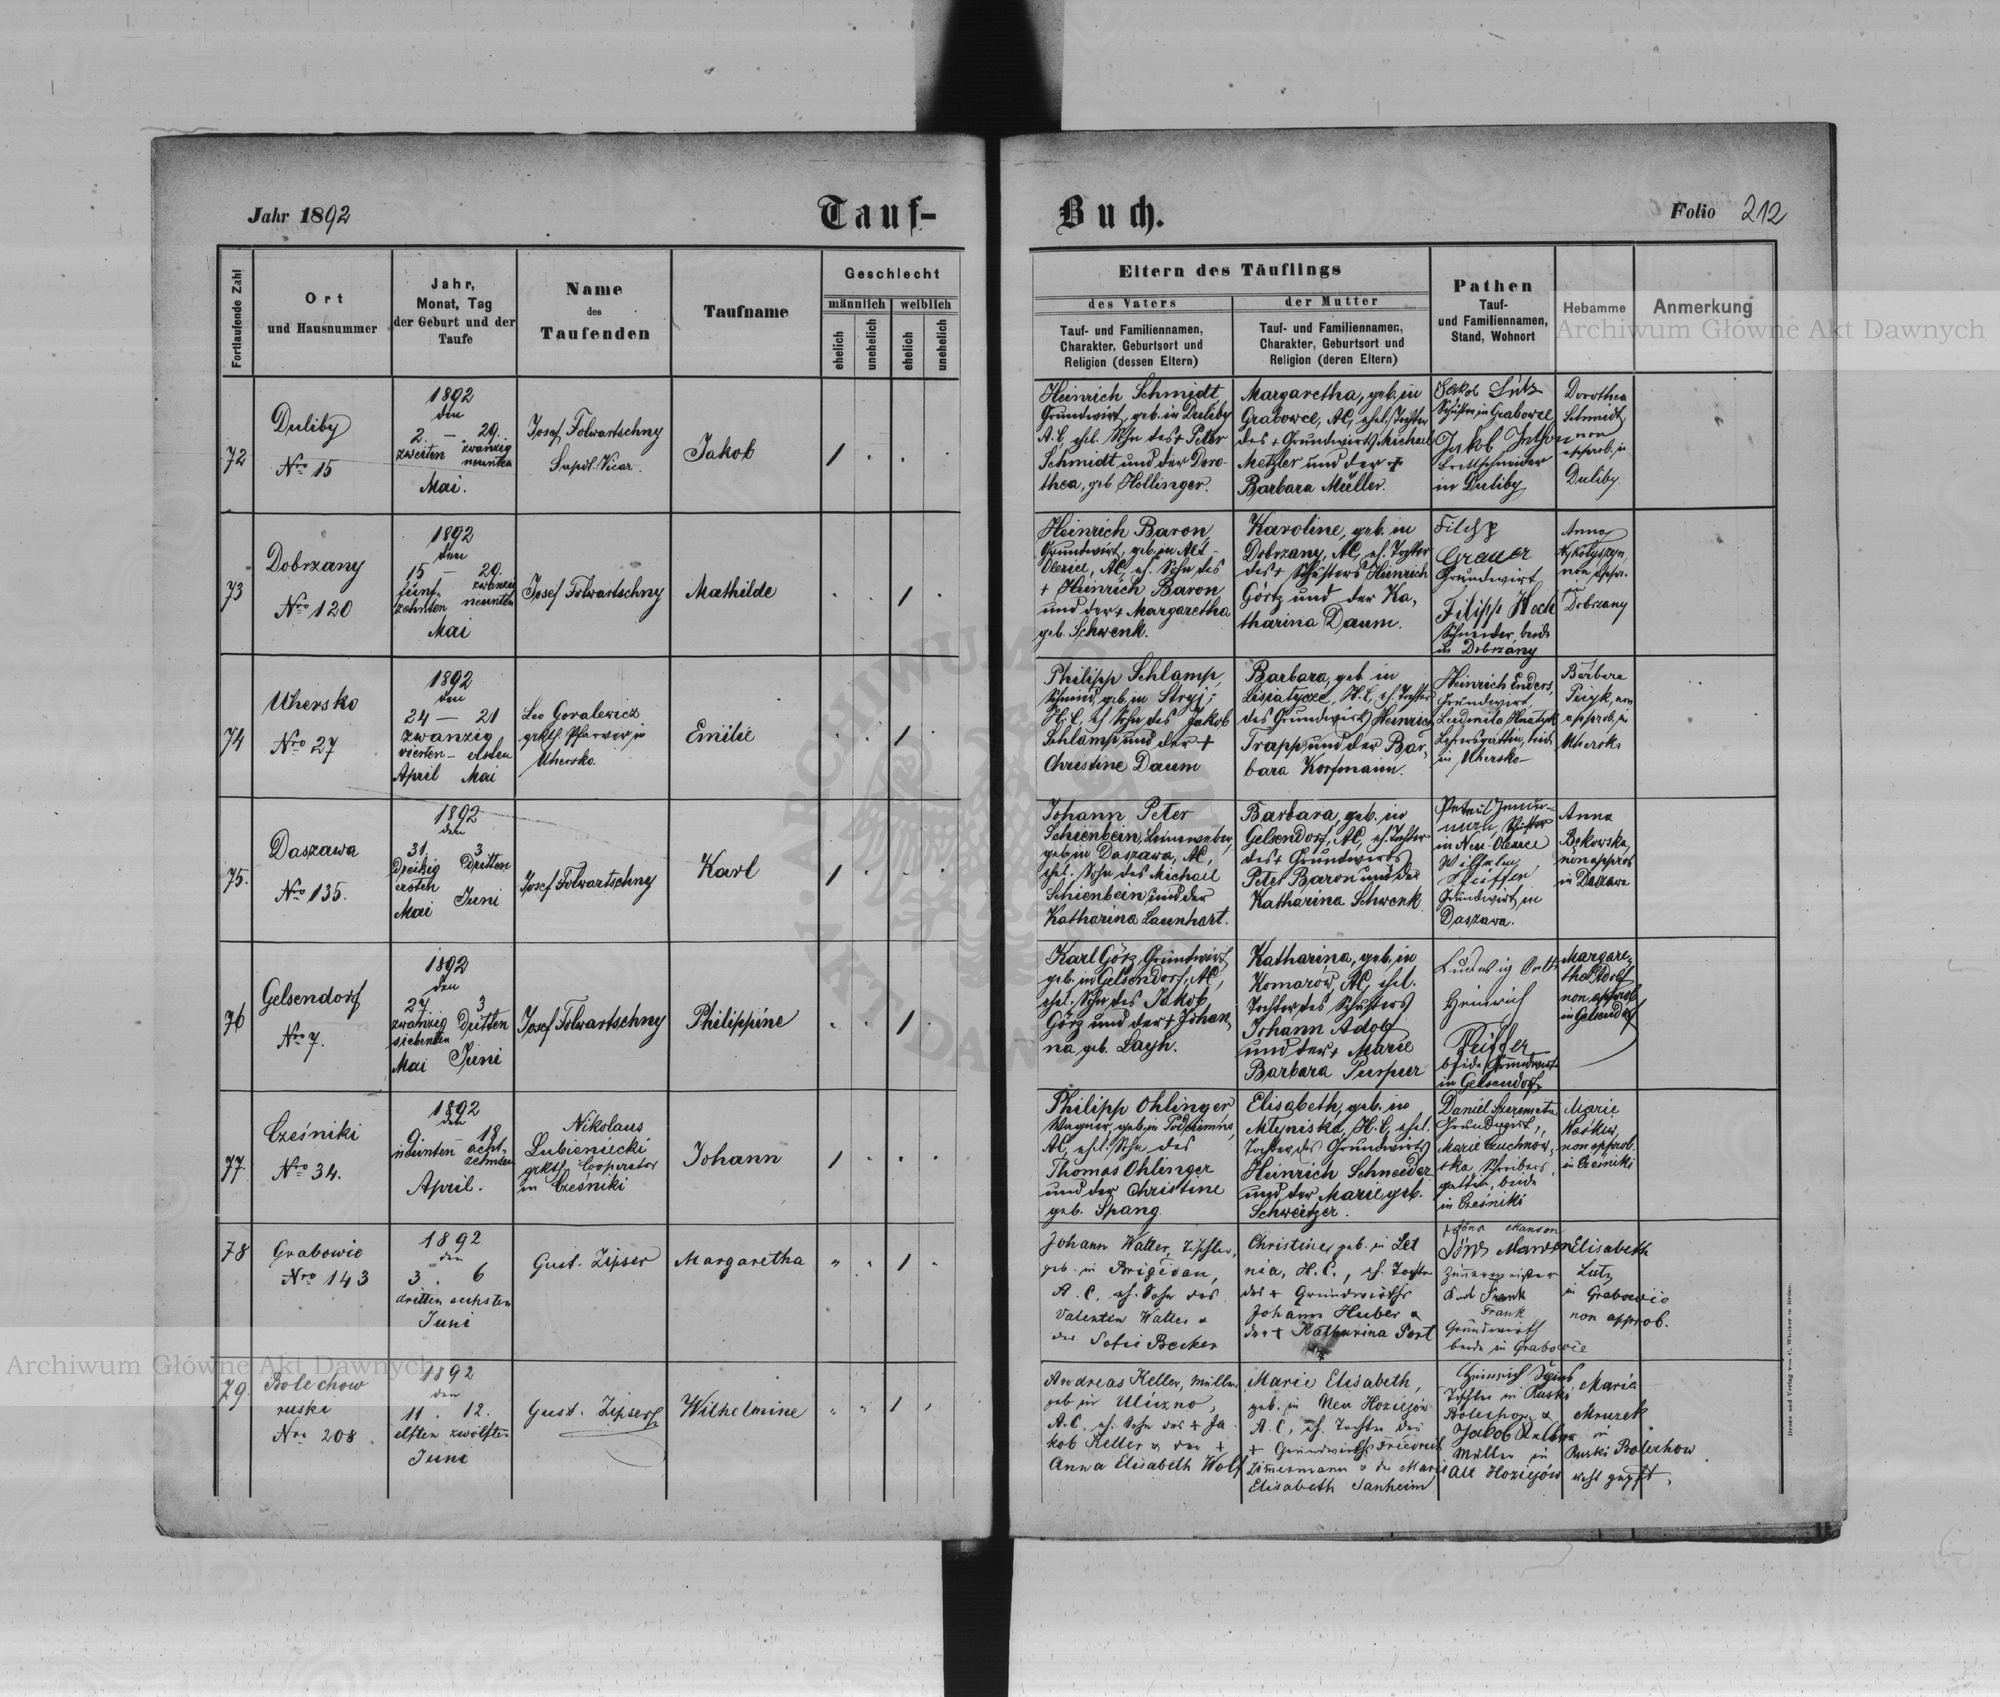 Jahr 1892
Tauf-
Buch.
Folio 212
Fortlaufende Zahl
Ort
und Hausnummer
Jahr,
Monat, Tag
der Geburt und der
Taufe
Name
des
Taufenden
Taufname
Geschlecht
männlich
weiblich
ehelich
unehelich
ehelich
unehelich
Eltern des Täuflings
des Vaters
Tauf- und Familiennamen,
Charakter, Geburtsort und
Religion (dessen Eltern)
der Mutter
Tauf- und Familiennamen,
Charakter, Geburtsort und
Religion (deren Eltern)
Pathen
Tauf-
und Familiennamen,
Stand, Wohnort
Hebamme
Anmerkung
72
Duliby
Nro 15
1892
den
2. — 29.
zweiten zwanzig
neunten
Mai.
Josef Folwartschny
Supdl. Vicar.
Jakob
Heinrich Schmidt
Grundwirt, geb. in Duliby
A.C, ehel. Sohn des + Peter
Schmidt und der Doro-
thea, geb. Hollinger.
Margaretha, geb. in
Grabowce, AC, ehel. Tochter
des + Grundwirts Michael
Metzler und der +
Barbara Müller.
Jakob Lütz
Schuster in Grabowce
Jakob
Brettschneider
in Duliby
Dorothea
Schmidt,
non
approb. in
Duliby.
73
Dobrzany
Nro 120
1892
den
15 — 29.
fünf- zwanzig
zehnten neunten
Mai
Josef Folwartschny
Mathilde
Heinrich Baron,
Grundwirt, geb. in Alt-
Olexice, AC, eh. Sohn des
+ Heinrich Baron
und der + Margaretha
geb. Schwenk.
Karoline, geb. in
Dobrzany, AC, eh. Tochter
des + Schusters Heinrich
Görtz und der Ka-
tharina Daum.
Filipp
Grauer
Grundwirt
Filipp Hoch
Schneider, beide
in Dobrzany
Anna
non approb.
in
Dobrzany
74
Uhersko
Nro 27
1892
den
24 — 21
zwanzig
vierten — elsten
April Mai
Leo Goralewicz
grkth. Pfarrer in
Uhersko.
Emilie
Philipp Schlamp,
Schmied, geb. in Stryj;
H.C, eh. Sohn des Jakob
Schlamp und der +
Christine Daum
Barbara, geb. in
Lisiatycze, H.C, eh. Tochter
des Grundwirts Heinrich
Trapp und der Bar-
bara Korfmann.
Heinrich Enders,
Grundwirt,
Ludmila Hnatyk
Lehrersgattin, beide
in Uhersko
Barbara
non
approb, in
Uhersko
75.
Daszawa
Nro 135.
1892
den
31. 3.
Dreißig Dritten
ersten
Mai Juni
Josef Folwartschny
Karl
Johann Peter
Schienbein, Leinweber,
geb. in Daszawa, AC,
ehel. Sohn des Michael
Schienbein und der
Katharina Launhart.
Barbara, geb. in
Gelsendorf, AC, eh. Tochter
des + Grundwirts
Peter Baron und der
Katharina Schwenk
in Neu Olexice
Wilhelm
Pfeiffer
Grundwirt in
Daszawa.
Anna
Bękowska,
non approb
in Daszawa
76
Gelsendorf
Nro 7.
1892
den
27. 3.
zwanzig Dritten
siebenten
Mai Juni
Josef Folwartschny
Philippine
Karl Görz, Grundwirt,
geb. in Gelsendorf, AC,
ehel. Sohn des Jakob
Görz und der + Johan-
na geb. Layh.
Katharina, geb. in
Komarow, AC, ehel.
Tochter des Schusters
Johann Adolf
und der + Marie
Barbara Purpur
Ludwig
Heinrich
Pfeiffer
beide Grundwirte
in Gelsendorf
Margare-
tha Adolf
non approb
in Gelsendorf
77.
Cześniki
Nro 34.
1892
den
9 — 18
neunten acht-
zehnten
April.
Nikolaus
Lubieniecki
grkth. Cooperator
in Cześniki
Johann
Philipp Ohlinger
Wagner, geb. in
AC, ehel. Sohn des
Thomas Ohlinger
und der Christine
geb. Spang.
Elisabeth, geb. in
Mlyniska, H.C, ehel.
Tochter des Grundwirts
Heinrich Schneider
und der Marie, geb.
Schweitzer.
Daniel Szeremeta
Grundwirt,
Marie
ska, Schreibers
gattin, beide
in Cześniki
Marie
non approb.
in Cześniki
78
Grabowie
Nro 143
1892
den
3. 6
dritten sechsten
Juni
Gust. Zipser
Margaretha
Johann Walter, Tischler,
geb. in Brigidau,
A.C. eh. Sohn des
Valentin Walter u
der Sofie Becker
Christine, geb. in Let
nia, H.C., eh. Tochter
des + Grundwirths
Johann Huber u
der + Katharina Port
Zimmermeister
Frank
Grundwirth
beide in Grabowie
Elisabeth
Lutz
in Grabowie
non approb.
79.
Bolechow
ruski
Nro 208
1892
den
11. 12.
elften zwölften
Juni
Gust. Zipser
Wilhelmine
Andreas Keller, Müller
geb. in Uliczno,
A.C. eh. Sohn des + Ja
kob Keller u der +
Anna Elisabeth Wolf
Marie Elisabeth,
geb. in Neu Hoziejow
A.C, eh. Tochter des
+ Grundwirths Friedrich
Zimmermann u der Marie
Elisabeth Tanheim
Heinrich
Tischler in Ruski
Bolechow u
Jakob Keller
Müller in
Alt Hoziejów
Maria
Mruzek
in
Ruski Bolechow
Archiwum Główne Akt Dawnych
Archiwum Główne Akt Dawnych